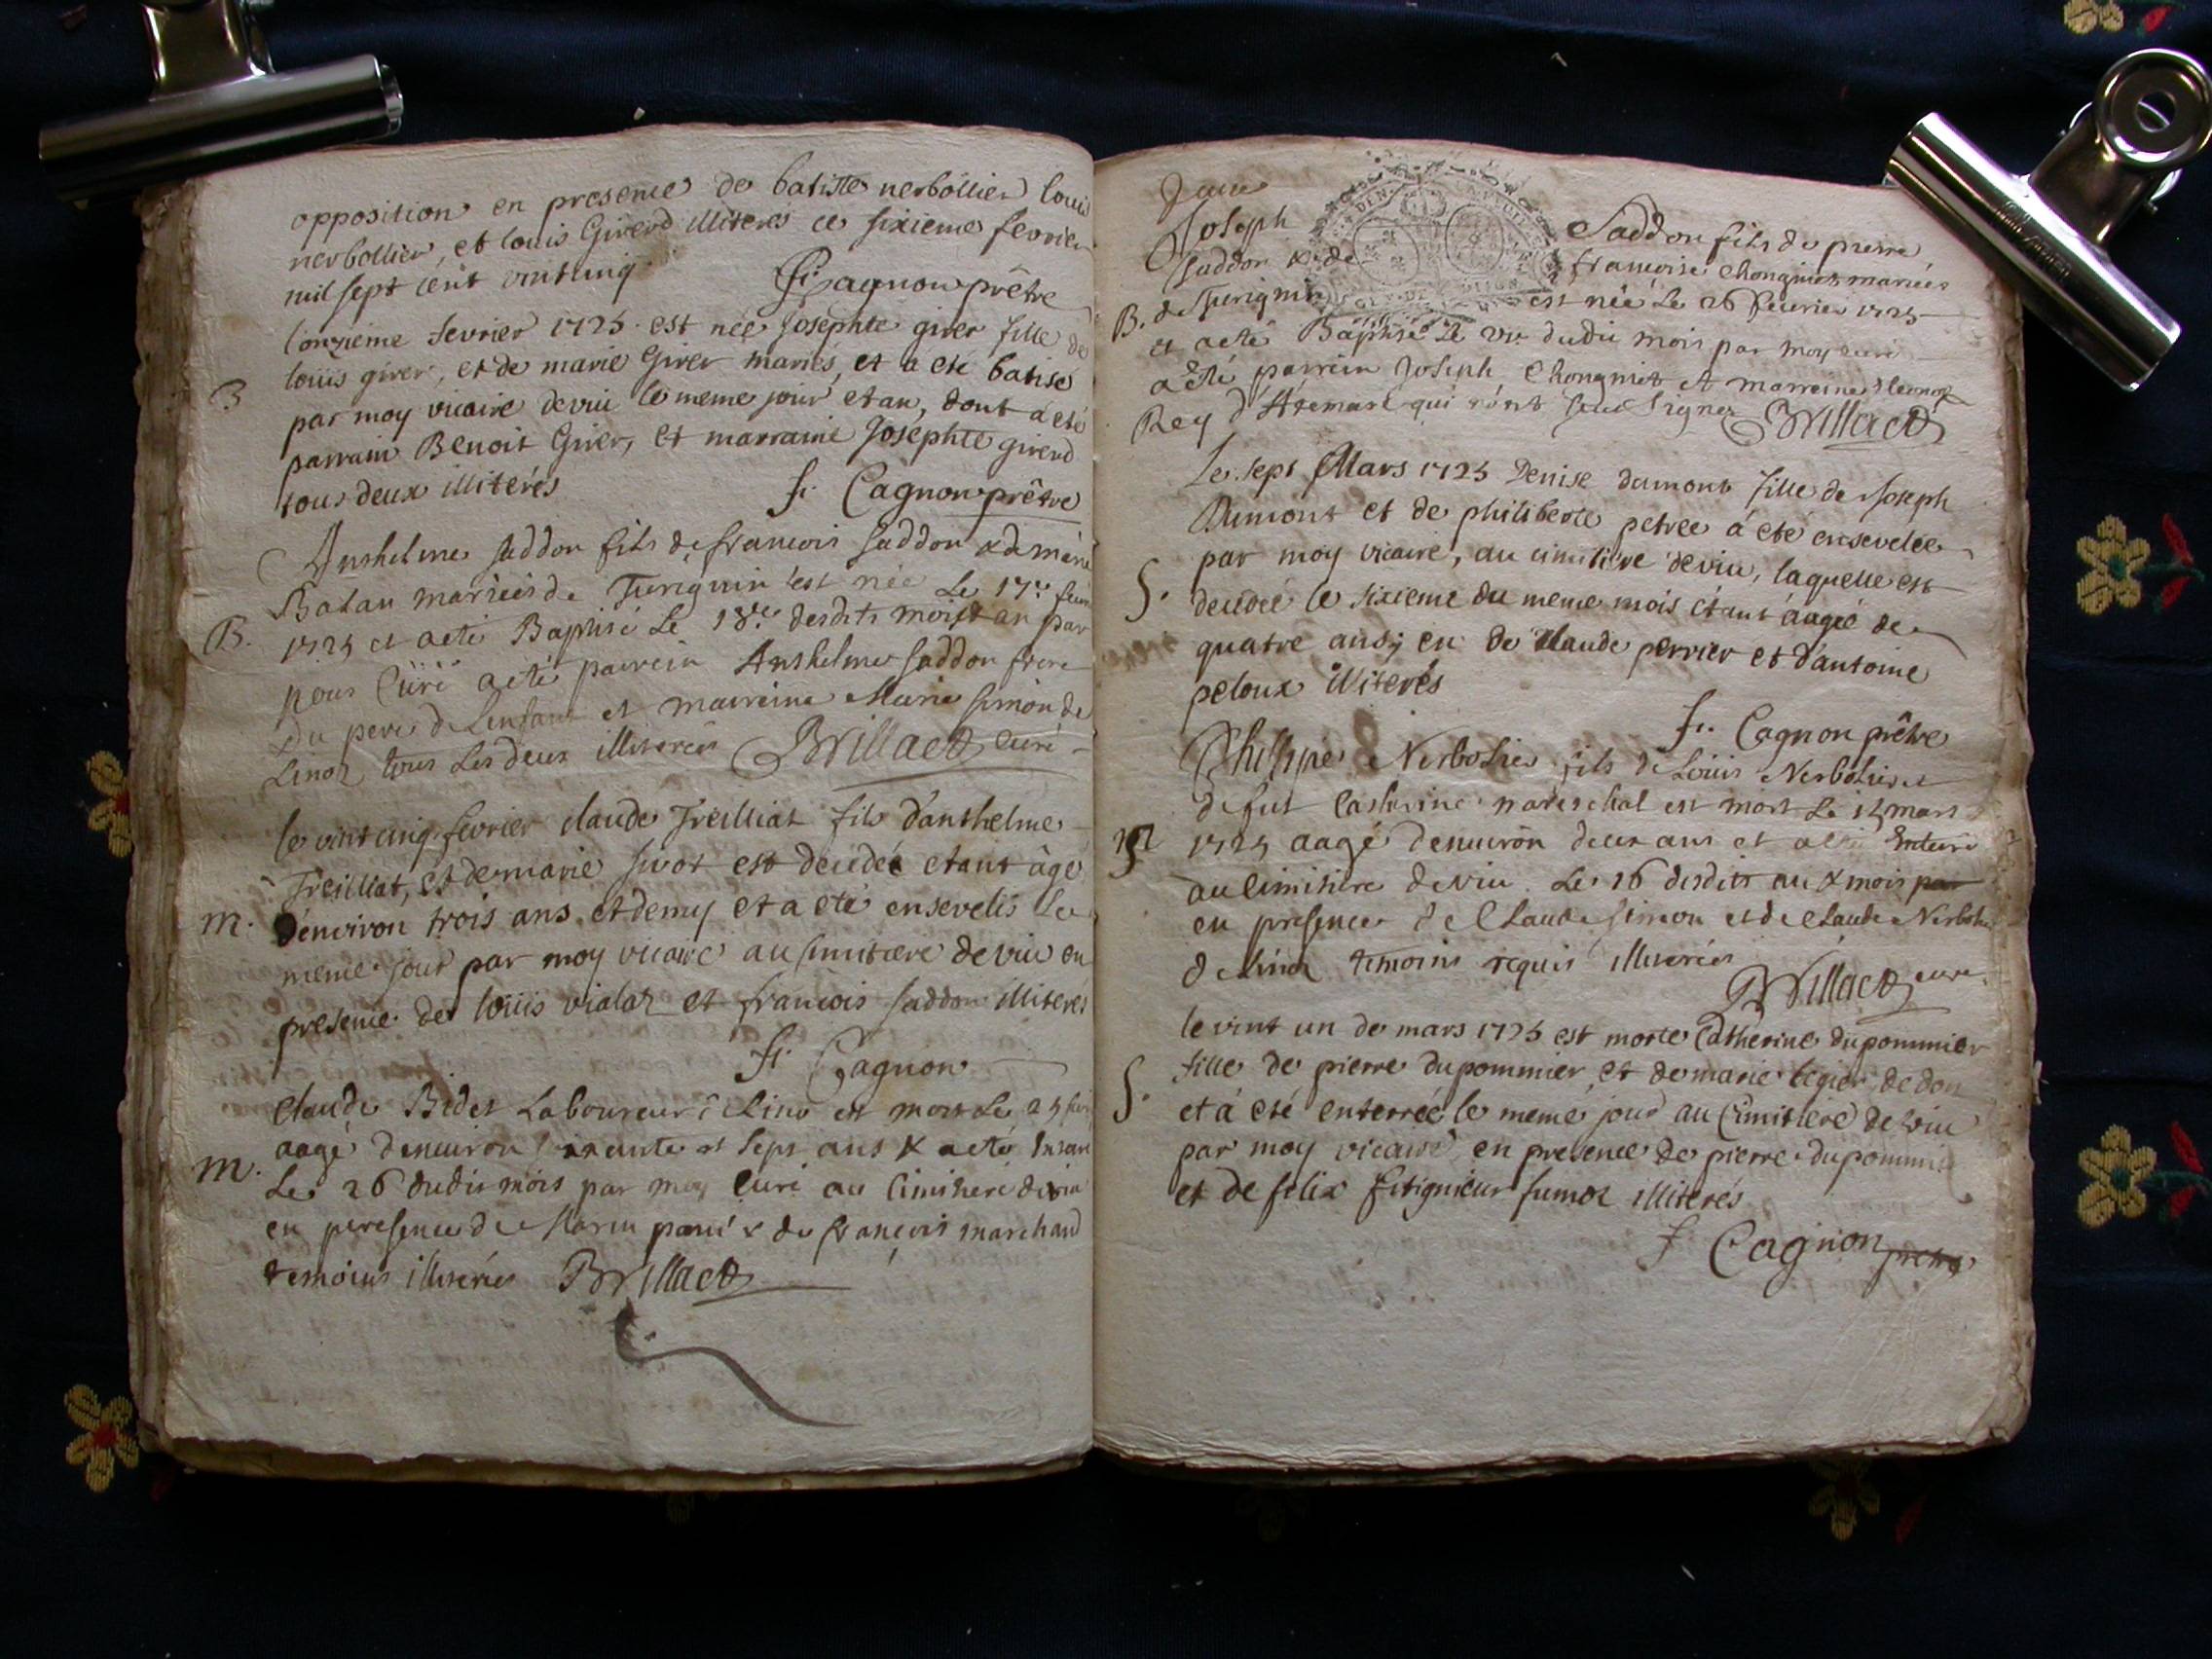 opposition en presence de batiste nerbollier louis
nerbollier, et louis Girerd illiteres ce sixieme fevrier
mil sept cent vint cinq
fr. Cagnon prêtre
l'onzieme fevrier 1725 est née Josephte girer fille de
louis girer, et de marie Girer mariés, et a eté batisé
B
par moy vicaire de viu le meme jour et an, dont a eté
parrain Benoit Girer, et marraine Josephte girerd
tous deux illiterés
fr. Cagnon prêtre
Anthelme saddon fils de francois saddon & de
Balan mariés de Turignin est née Le 17e
B.
1725 et a eté Baptisé Le 18e desdits mois & an par
nous Curé a eté parrein Anthelme saddon frere
Du pere de L'enfant et marreine Marie simon de
Linod tous Les deux illiterés Brillact curé
le vint cinq fevrier claude Treilliat fils d'anthelme
Treilliat, et de marie sivot est decedée etant àgé
m.
d'environ trois ans et demy et a eté ensevelis Le
meme jour par moy vicaire au simitiere de viu en
presence de louis vialat et francois saddon illiterés
fr Cagnon
Claude Bidet Laboureur a Lino est mort Le 25
aagé d'environ et sept ans & a eté
m.
Le 26 dudit mois par moy Curé au Cimitiere de viu
en presence de Marin & de françois marchand
temoins illiterés Brillact
Joseph
saddon & de
Saddon fils de pierre
françoise Chongniet mariées
B.
de Turignin est née Le 26 fevrier 1725
et a eté Baptisé Le dudit mois par moy curé
a êté parrein Joseph Chongniet et marreine
Rey d'Artemare qui n'ont sceu signer Brillact
Le sept Mars 1725 Denise dumont fille de Joseph
Dumont et de philiberte petree á eté ensevelée
par moy vicaire, au cimitiére de viu, laquelle est
S.
decedée le sixieme du meme mois étant áagée de
quatre ans; en de Claude perrier et d'antoine
peloux illiterés
fr. Cagnon prêtre
Philippe Nerbolier fils de Louis Nerbolier et
de fut Catherine mareschal est mort Le 15 mars
1725 aagé d'environ deux ans et a eté Enterré
au Cimitiere de viu Le 16 desdits an & mois par
en presence de Claude simon et de Claude Nerbolier
de Linod temoins requis illiterés
Brillact curé
le vint un de mars 1725 est morte Catherine dupommier
fille de pierre dupommier et de marie legier de don
S.
et á eté enterrée le memé jour au Cimitiere de viu
par moy vicaire en presence de pierre dupommier
et de felix illiterés
f Cagnon pretre